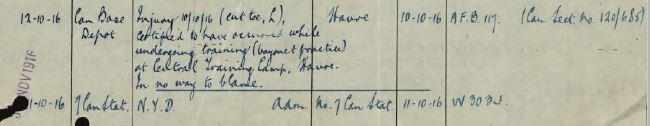 12-10-16 Can Base Depot Injury 10/10/16 (cut toe, L), Havre 10-10-16 A.F.B. 117. (Can. Sect No. 120/685)
certified to have occurred while
undergoing training (bayonet practice)
at Central Training Camp, Havre.
In no way to blame.
NOV 1916
1-10-16 7 Can Stat. N.Y.D. Adm. No. 7 Can Stat 11-10-16 W 3034.